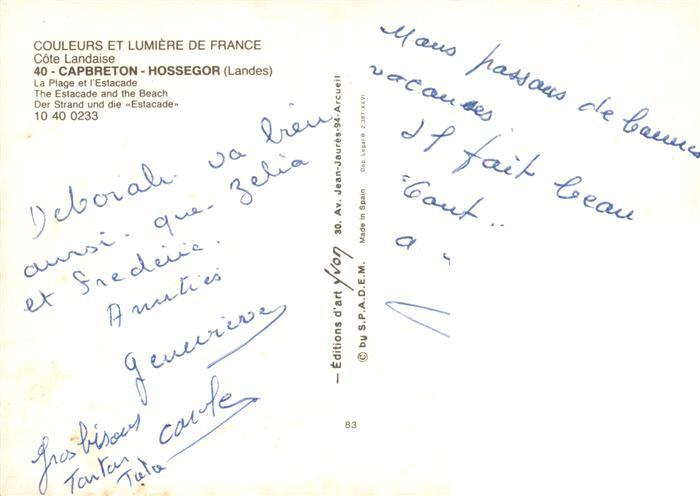 COULEURS ET LUMIÈRE DE FRANCE
Côte Landaise
40 - CAPBRETON - HOSSEGOR (Landes)
La Plage et l'Estacade
The Estacade and the Beach
Der Strand und die «Estacade»
10 40 0233
Nous passons de bonnes
vacances
Il fait beau
Tout
a
Deborah va bien
aussi que Zelia
et Frederic.
Amitiés
Geneviève
Gros bisous
Tontan Carole
Tata
— Éditions d'art yvon 30, Av. Jean-Jaurès-94-Arcueil
© by S.P.A.D.E.M. Made in Spain Dép. Légal B. 2.387-XXVI
83